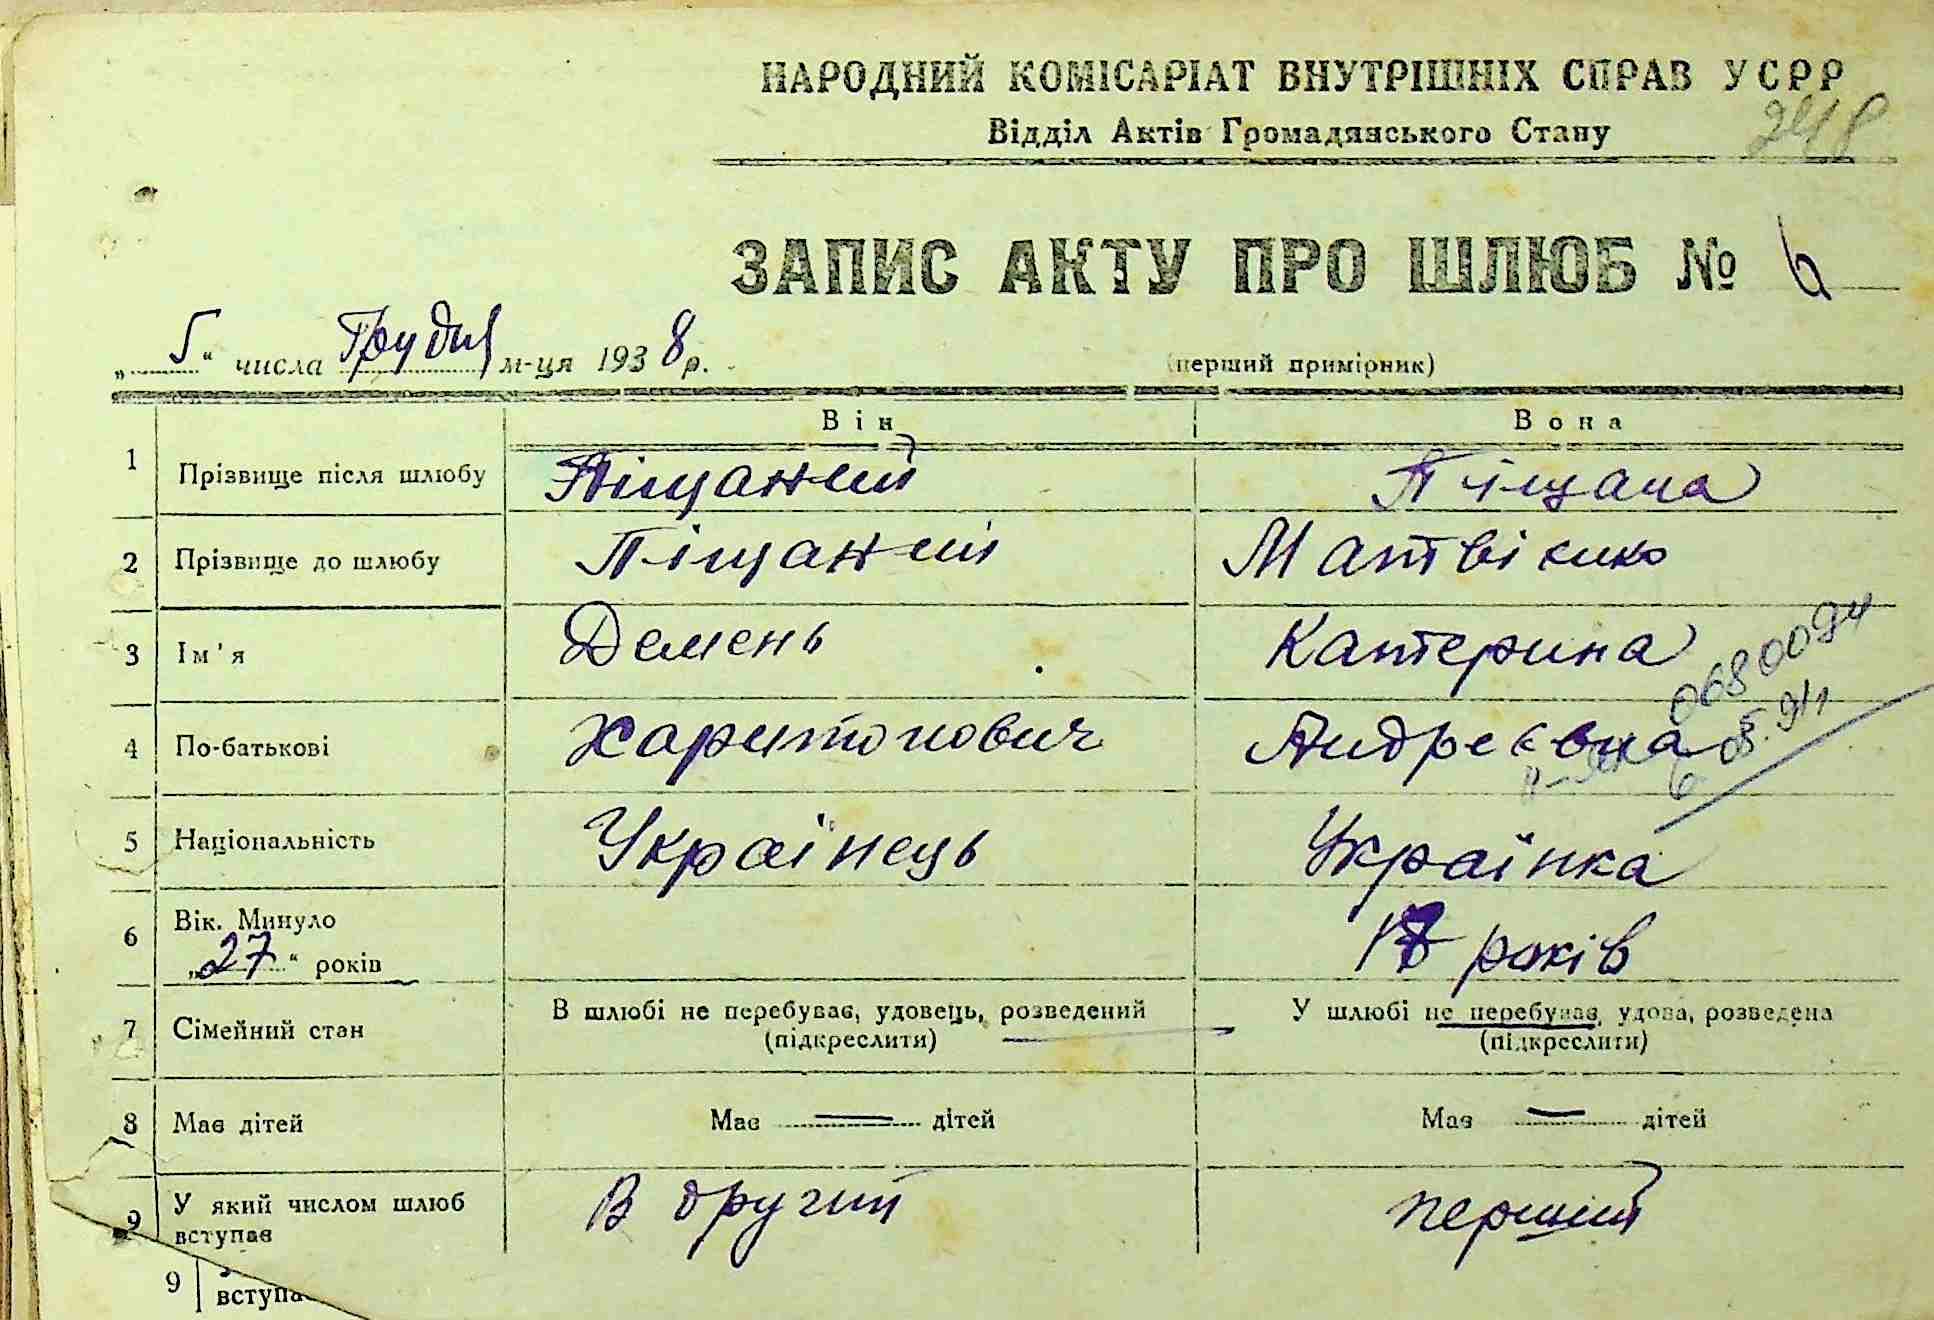 НАРОДНИЙ КОМІСАРІАТ ВНУТРІШНІХ СПРАВ УСРР
Відділ Актів Громадянського Стану
248
ЗАПИС АКТУ ПРО ШЛЮБ № 6
„5“ числа Грудня м-ця 1938 р.
(перший примірник)
Він Вона
1 Прізвище після шлюбу Піщаний Піщана
2 Прізвище до шлюбу Піщаний Матвієнко
3 Ім'я Демень Катерина
0680094
4 По-батькові Харитонович Андреєвна
05.91
5 Національність Українець Українка
6 Вік. Минуло „27“ років років
7 Сімейний стан В шлюбі не перебуває, удовець, розведений У шлюбі не перебуває, удова, розведена
(підкреслити) (підкреслити)
8 Має дітей Має — дітей Має — дітей
9 У який числом шлюб вступає В другий перший
9 вступає